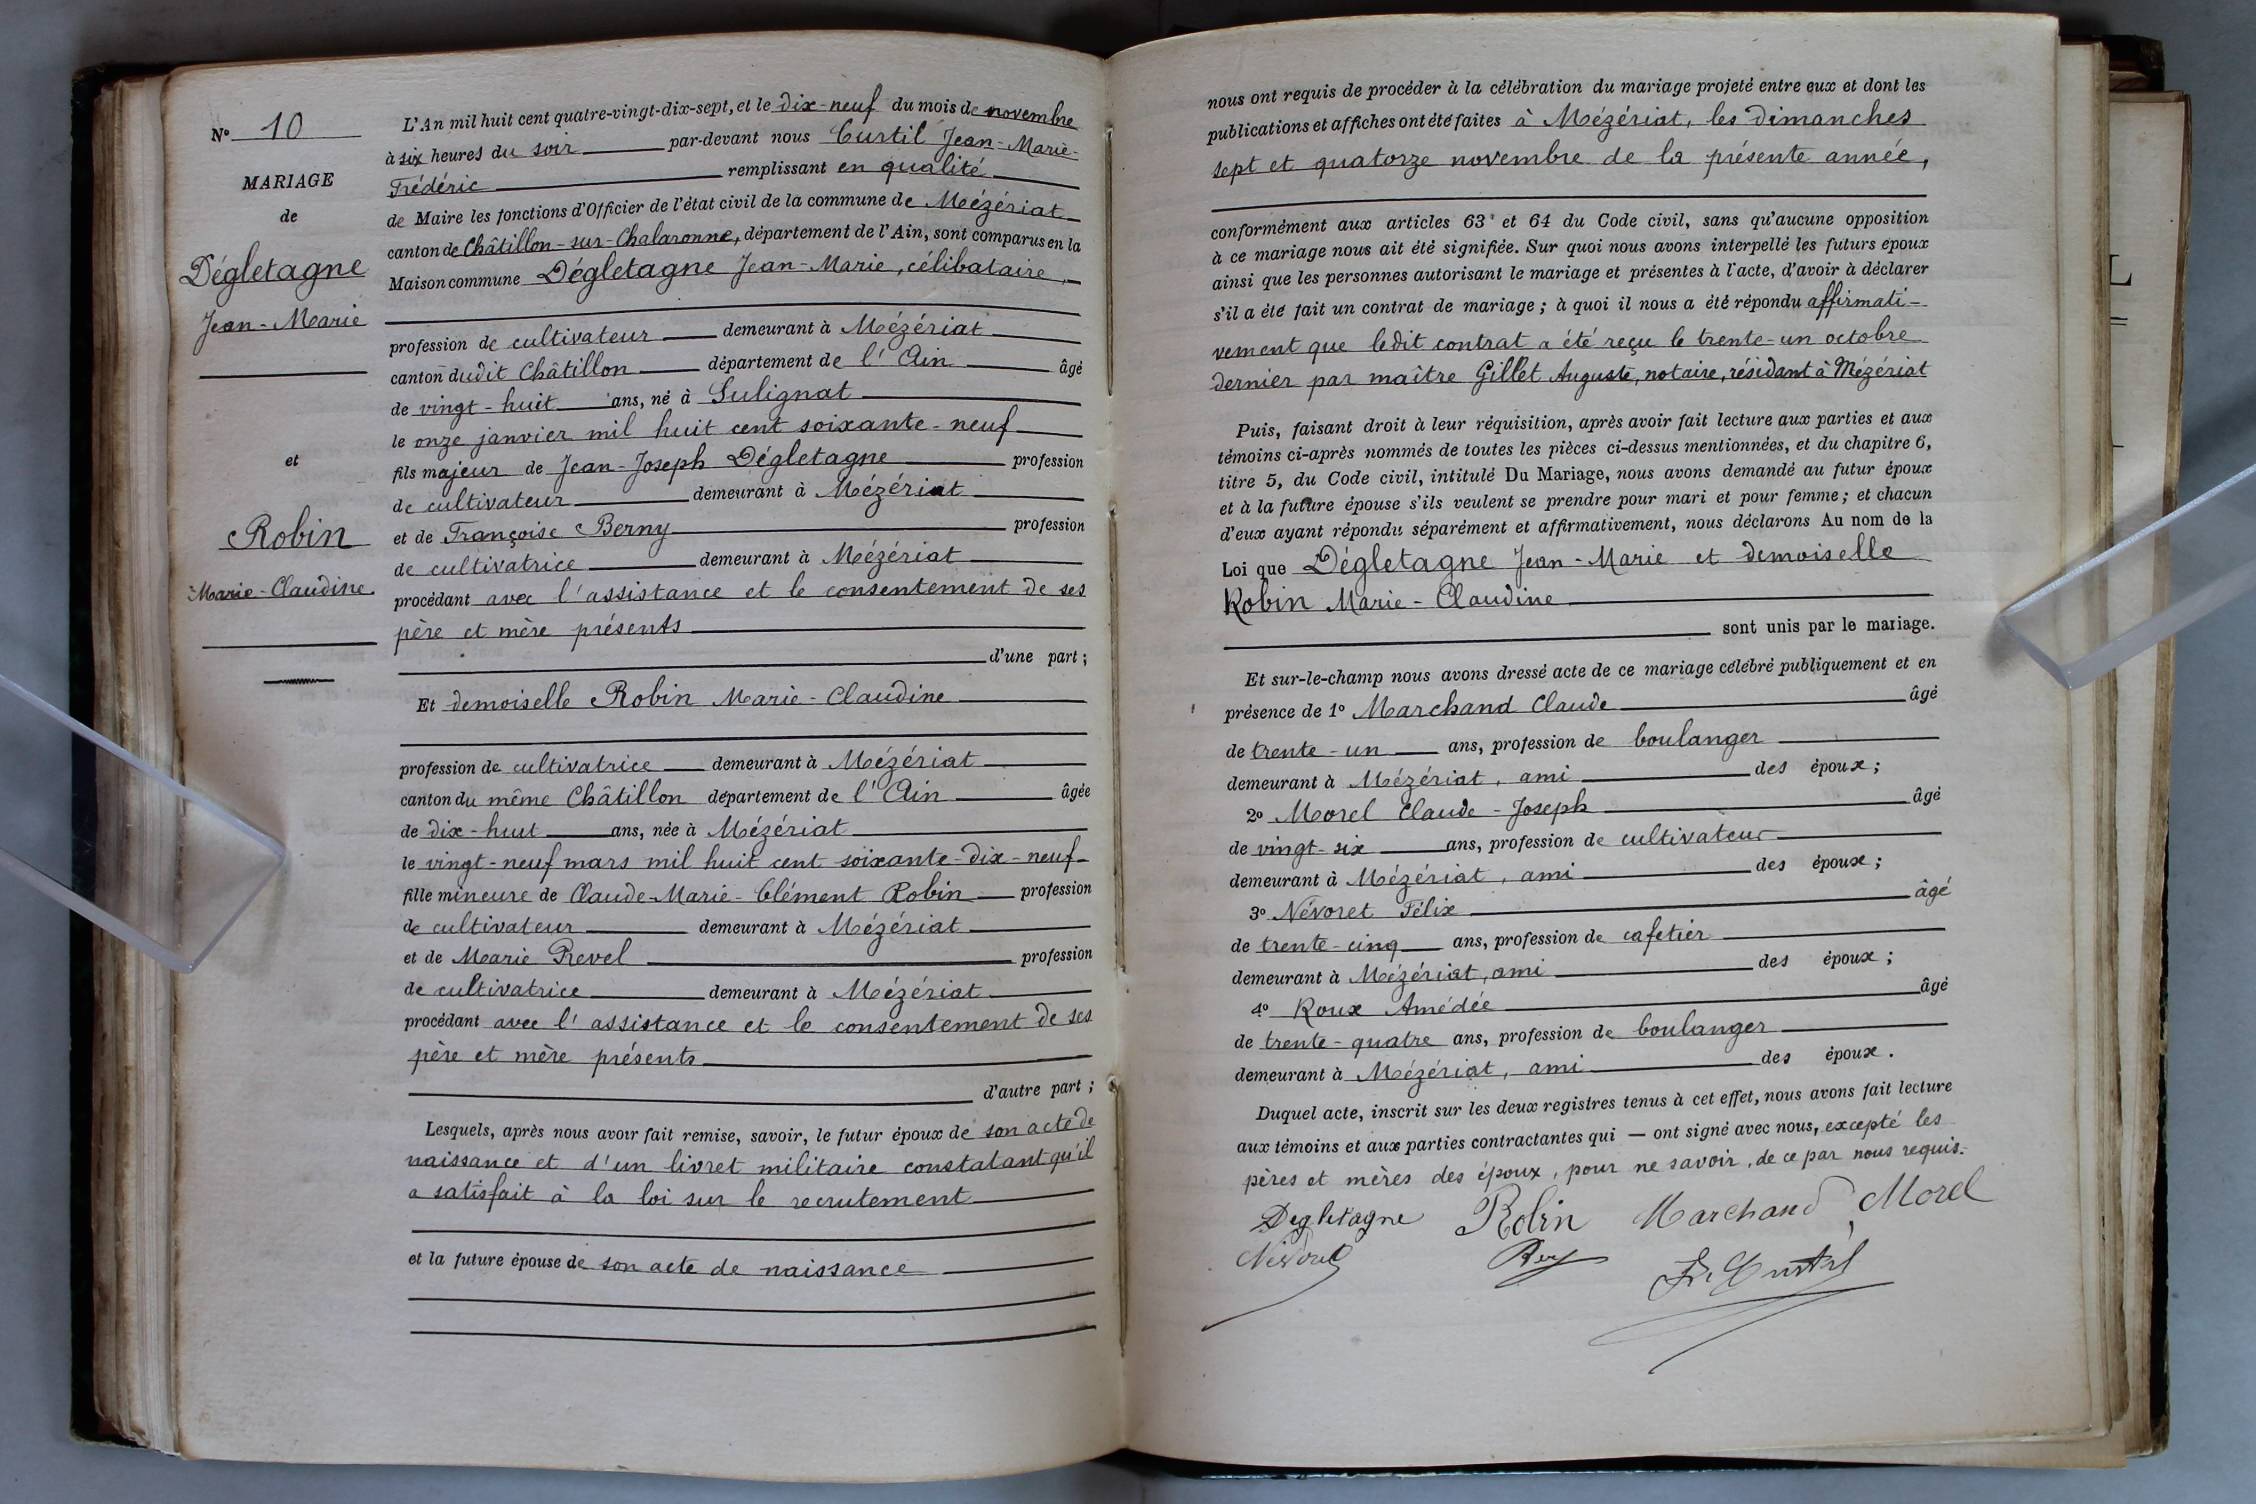 N° 10
MARIAGE
de
Dégletagne
Jean-Marie
et
Robin
Marie-Claudine.
L'An mil huit cent quatre-vingt-dix-sept, et le dix-neuf du mois de novembre
à six heures du soir par-devant nous Curtil Jean-Marie-
Frédéric remplissant en qualité
de Maire les fonctions d'Officier de l'état civil de la commune de Mézériat
canton de Châtillon-sur-Chalaronne, département de l'Ain, sont comparus en la
Maison commune Dégletagne Jean-Marie, célibataire,
profession de cultivateur demeurant à Mézériat
canton dudit Châtillon département de l'Ain âgé
de vingt-huit ans, né à Sulignat
le onze janvier mil huit cent soixante-neuf
fils majeur de Jean-Joseph Dégletagne profession
de cultivateur demeurant à Mézériat
et de Françoise Berny profession
de cultivatrice demeurant à Mézériat
procédant avec l'assistance et le consentement de ses
père et mère présents
d'une part ;
Et demoiselle Robin Marie-Claudine
profession de cultivatrice demeurant à Mézériat
canton du même Châtillon département de l'Ain âgée
de dix-huit ans, née à Mézériat
le vingt-neuf mars mil huit cent soixante-dix-neuf
fille mineure de Claude-Marie-Clément Robin profession
de cultivateur demeurant à Mézériat
et de Marie Prevel profession
de cultivatrice demeurant à Mézériat
procédant avec l'assistance et le consentement de ses
père et mère présents
d'autre part ;
Lesquels, après nous avoir fait remise, savoir, le futur époux de son acte de
naissance et d'un livret militaire constatant qu'il
a satisfait à la loi sur le recrutement
et la future épouse de son acte de naissance
nous ont requis de procéder à la célébration du mariage projeté entre eux et dont les
publications et affiches ont été faites à Mézériat, les dimanches
sept et quatorze novembre de la présente année,
conformément aux articles 63 et 64 du Code civil, sans qu'aucune opposition
à ce mariage nous ait été signifiée. Sur quoi nous avons interpellé les futurs époux
ainsi que les personnes autorisant le mariage et présentes à l'acte, d'avoir à déclarer
s'il a été fait un contrat de mariage ; à quoi il nous a été répondu affirmati-
vement que ledit contrat a été reçu le trente-un octobre
dernier par maître Gillet Auguste, notaire, résidant à Mézériat
Puis, faisant droit à leur réquisition, après avoir fait lecture aux parties et aux
témoins ci-après nommés de toutes les pièces ci-dessus mentionnées, et du chapitre 6,
titre 5, du Code civil, intitulé Du Mariage, nous avons demandé au futur époux
et à la future épouse s'ils veulent se prendre pour mari et pour femme ; et chacun
d'eux ayant répondu séparément et affirmativement, nous déclarons Au nom de la
Loi que Dégletagne Jean-Marie et demoiselle
Robin Marie-Claudine
sont unis par le mariage.
Et sur-le-champ nous avons dressé acte de ce mariage célébré publiquement et en
présence de 1° Marchand Claude âgé
de trente-un ans, profession de boulanger
demeurant à Mézériat, ami des époux ;
2° Morel Claude-Joseph âgé
de vingt-six ans, profession de cultivateur
demeurant à Mézériat, ami des époux ;
3° Névoret Félix âgé
de trente-cinq ans, profession de cafetier
demeurant à Mézériat, ami des époux ;
4° Roux Amédée âgé
de trente-quatre ans, profession de boulanger
demeurant à Mézériat, ami des époux.
Duquel acte, inscrit sur les deux registres tenus à cet effet, nous avons fait lecture
aux témoins et aux parties contractantes qui — ont signé avec nous, excepté les
pères et mères des époux, pour ne savoir, de ce par nous requis.
Degletagne Robin Marchand Morel
Névoret Fr. Curtil
L